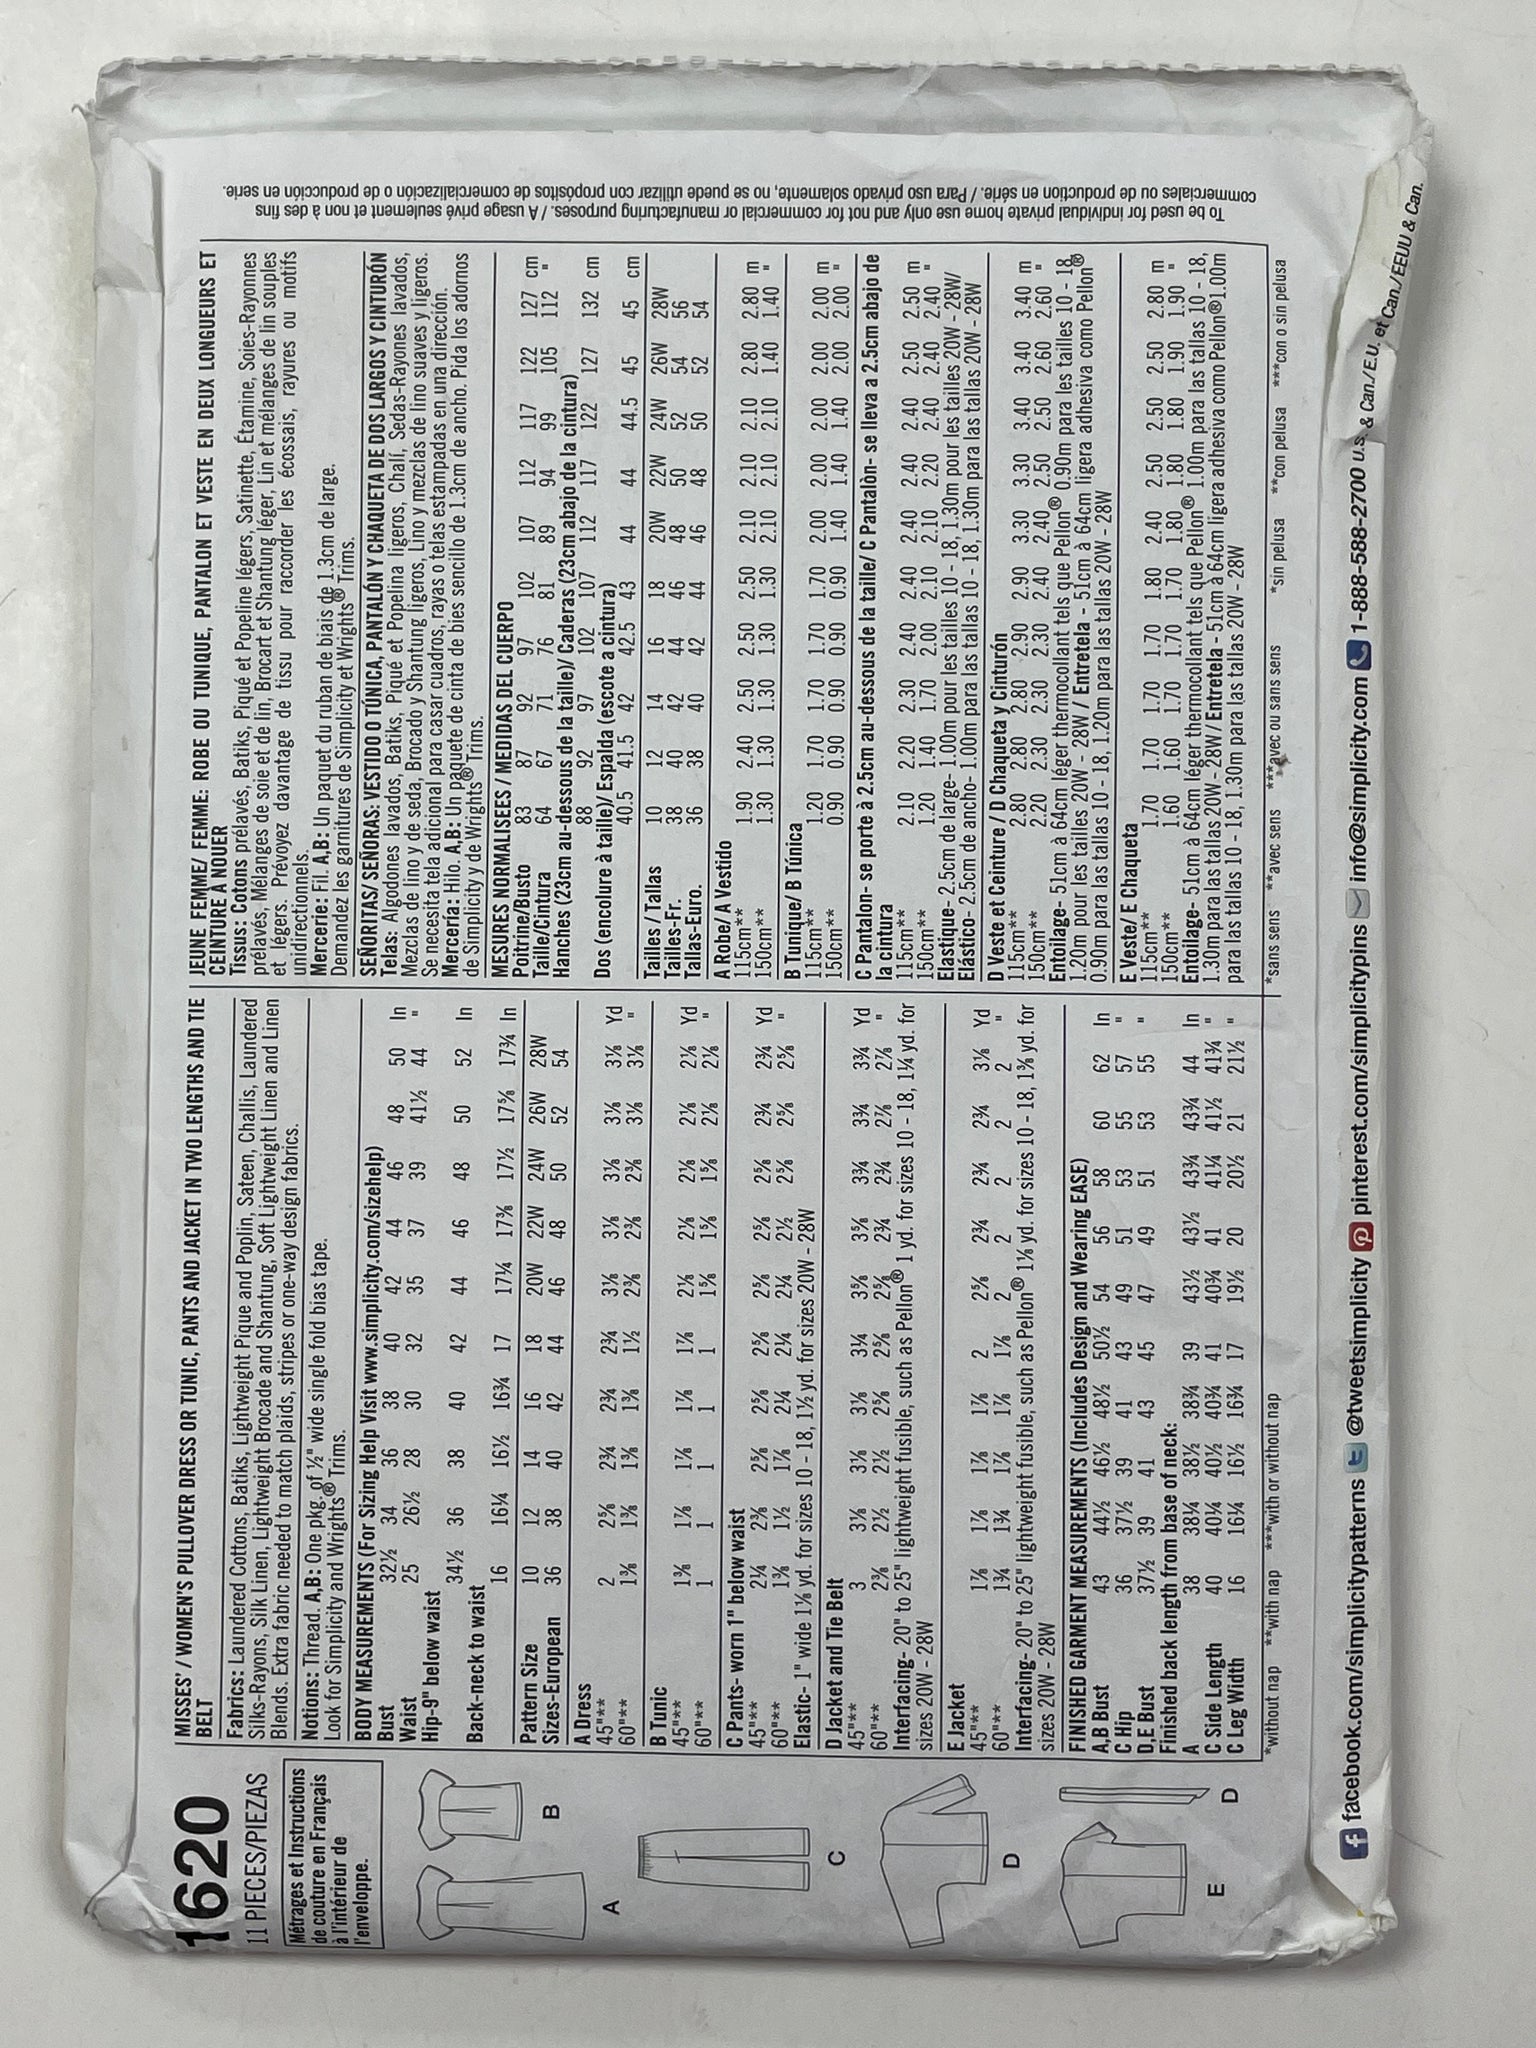 1620
11 PIECES/PIEZAS
Métrages et Instructions
de couture en Français
à l'intérieur de
l'enveloppe.
B
A
C
D
E
D
MISSES' / WOMEN'S PULLOVER DRESS OR TUNIC, PANTS AND JACKET IN TWO LENGTHS AND TIE
BELT
Fabrics: Laundered Cottons, Batiks, Lightweight Pique and Poplin, Sateen, Challis, Laundered
Silks-Rayons, Silk Linen, Lightweight Brocade and Shantung, Soft Lightweight Linen and Linen
Blends. Extra fabric needed to match plaids, stripes or one-way design fabrics.
Notions: Thread. A,B: One pkg. of ½" wide single fold bias tape.
Look for Simplicity and Wrights® Trims.
BODY MEASUREMENTS (For Sizing Help Visit www.simplicity.com/sizehelp)
Bust 32½ 34 36 38 40 42 44 46 48 50 In
Waist 25 26½ 28 30 32 35 37 39 41½ 44 "
Hip-9" below waist
34½ 36 38 40 42 44 46 48 50 52 In
Back-neck to waist
16 16¼ 16½ 16¾ 17 17¼ 17⅜ 17½ 17⅝ 17¾ In
Pattern Size 10 12 14 16 18 20W 22W 24W 26W 28W
Sizes-European 36 38 40 42 44 46 48 50 52 54
A Dress
45"** 2 2⅝ 2¾ 2¾ 2¾ 3⅛ 3⅛ 3⅛ 3⅛ 3⅛ Yd
60"** 1⅜ 1⅜ 1⅜ 1⅜ 1½ 2⅜ 2⅜ 2⅜ 3⅛ 3⅛ "
B Tunic
45"** 1⅜ 1⅞ 1⅞ 1⅞ 1⅞ 2⅛ 2⅛ 2⅛ 2⅛ 2⅛ Yd
60"** 1 1 1 1 1 1⅝ 1⅝ 1⅝ 2⅛ 2⅛ "
C Pants- worn 1" below waist
45"** 2¼ 2⅜ 2⅝ 2⅝ 2⅝ 2⅝ 2⅝ 2⅝ 2¾ 2¾ Yd
60"** 1⅜ 1½ 1⅞ 2¼ 2¼ 2¼ 2½ 2⅝ 2⅝ 2⅝ "
Elastic- 1" wide 1⅛ yd. for sizes 10 - 18, 1½ yd. for sizes 20W - 28W
D Jacket and Tie Belt
45"** 3 3⅛ 3⅛ 3⅛ 3¼ 3⅝ 3⅝ 3¾ 3¾ 3¾ Yd
60"** 2⅜ 2½ 2½ 2⅝ 2⅝ 2⅝ 2¾ 2¾ 2⅞ 2⅞ "
Interfacing- 20" to 25" lightweight fusible, such as Pellon® 1 yd. for sizes 10 - 18, 1¼ yd. for
sizes 20W - 28W
E Jacket
45"** 1⅞ 1⅞ 1⅞ 1⅞ 2 2⅝ 2¾ 2¾ 2¾ 3⅛ Yd
60"** 1¾ 1¾ 1⅞ 1⅞ 1⅞ 2 2 2 2 2 "
Interfacing- 20" to 25" lightweight fusible, such as Pellon® 1⅛ yd. for sizes 10 - 18, 1⅜ yd. for
sizes 20W - 28W
FINISHED GARMENT MEASUREMENTS (Includes Design and Wearing EASE)
A,B Bust 43 44½ 46½ 48½ 50½ 54 56 58 60 62 In
C Hip 36 37½ 39 41 43 49 51 53 55 57 "
D,E Bust 37½ 39 41 43 45 47 49 51 53 55 "
Finished back length from base of neck:
A 38 38¼ 38½ 38¾ 39 43½ 43½ 43¾ 43¾ 44 In
C Side Length 40 40¼ 40½ 40¾ 41 40¾ 41 41¼ 41½ 41¾ "
C Leg Width 16 16¼ 16½ 16¾ 17 19½ 20 20½ 21 21½ "
*without nap **with nap ***with or without nap
JEUNE FEMME/ FEMME: ROBE OU TUNIQUE, PANTALON ET VESTE EN DEUX LONGUEURS ET
CEINTURE À NOUER
Tissus: Cotons prélavés, Batiks, Piqué et Popeline légers, Satinette, Étamine, Soies-Rayonnes
prélavés, Mélanges de soie et de lin, Brocart et Shantung léger, Lin et mélanges de lin souples
et légers. Prévoyez davantage de tissu pour raccorder les écossais, rayures ou motifs
unidirectionnels.
Mercerie: Fil. A,B: Un paquet du ruban de biais de 1.3cm de large.
Demandez les garnitures de Simplicity et Wrights® Trims.
SEÑORITAS/ SEÑORAS: VESTIDO O TÚNICA, PANTALÓN Y CHAQUETA DE DOS LARGOS Y CINTURÓN
Telas: Algodones lavados, Batiks, Piqué et Popelina ligeros, Chalí, Sedas-Rayones lavados,
Mezclas de lino y de seda, Brocado y Shantung ligeros, Lino y mezclas de lino suaves y ligeros.
Se necesita tela adicional para casar cuadros, rayas o telas estampadas en una dirección.
Mercería: Hilo. A,B: Un paquete de cinta de bies sencillo de 1.3cm de ancho. Pida los adornos
de Simplicity y de Wrights® Trims.
MESURES NORMALISEES / MEDIDAS DEL CUERPO
Poitrine/Busto 83 87 92 97 102 107 112 117 122 127 cm
Taille/Cintura 64 67 71 76 81 89 94 99 105 112 "
Hanches (23cm au-dessous de la taille)/ Caderas (23cm abajo de la cintura)
88 92 97 102 107 112 117 122 127 132 cm
Dos (encolure à taille)/ Espalda (escote a cintura)
40.5 41.5 42 42.5 43 44 44 44.5 45 45 cm
Tailles / Tallas 10 12 14 16 18 20W 22W 24W 26W 28W
Tailles-Fr. 38 40 42 44 46 48 50 52 54 56
Tallas-Euro. 36 38 40 42 44 46 48 50 52 54
A Robe/ A Vestido
115cm** 1.90 2.40 2.50 2.50 2.50 2.10 2.10 2.10 2.80 2.80 m
150cm** 1.30 1.30 1.30 1.30 1.30 2.10 2.10 2.10 1.40 1.40 "
B Tunique/ B Túnica
115cm** 1.20 1.70 1.70 1.70 1.70 2.00 2.00 2.00 2.00 2.00 m
150cm** 0.90 0.90 0.90 0.90 0.90 1.40 1.40 1.40 2.00 2.00 "
C Pantalon- se porte à 2.5cm au-dessous de la taille/ C Pantalòn- se lleva a 2.5cm abajo de
la cintura
115cm** 2.10 2.20 2.30 2.40 2.40 2.40 2.40 2.40 2.50 2.50 m
150cm** 1.20 1.40 1.70 2.00 2.10 2.10 2.20 2.40 2.40 2.40 "
Elastique- 2.5cm de large- 1.00m pour les tailles 10 - 18, 1.30m pour les tailles 20W - 28W/
Elástico- 2.5cm de ancho- 1.00m para las tallas 10 - 18, 1.30m para las tallas 20W - 28W
D Veste et Ceinture / D Chaqueta y Cinturón
115cm** 2.80 2.80 2.80 2.90 2.90 3.30 3.30 3.40 3.40 3.40 m
150cm** 2.20 2.30 2.30 2.30 2.40 2.40 2.50 2.50 2.60 2.60 "
Entoilage- 51cm à 64cm léger thermocollant tels que Pellon® 0.90m para les tailles 10 - 18,
1.20m pour les tailles 20W - 28W / Entretela - 51cm à 64cm ligera adhesiva como Pellon®
0.90m para las tallas 10 - 18, 1.20m para las tallas 20W - 28W
E Veste/ E Chaqueta
115cm** 1.70 1.70 1.70 1.70 1.80 2.40 2.50 2.50 2.50 2.80 m
150cm** 1.60 1.60 1.70 1.70 1.70 1.80 1.80 1.80 1.90 1.90 "
Entoilage- 51cm à 64cm léger thermocollant tels que Pellon® 1.00m para las tallas 10 - 18,
1.30m para las tallas 20W - 28W/ Entretela - 51cm à 64cm ligera adhesiva como Pellon®1.00m
para las tallas 10 - 18, 1.30m para las tallas 20W - 28W
*sans sens **avec sens ***avec ou sans sens *sin pelusa **con pelusa ***con o sin pelusa
To be used for individual private home use only and not for commercial or manufacturing purposes. / A usage privé seulement et non à des fins
commerciales ou de production en série. / Para uso privado solamente, no se puede utilizar con propósitos de comercialización o de producción en serie.
facebook.com/simplicitypatterns @tweetsimplicity pinterest.com/simplicitypins info@simplicity.com 1-888-588-2700 U.S. & Can./E.U. et Can./EEUU & Can.